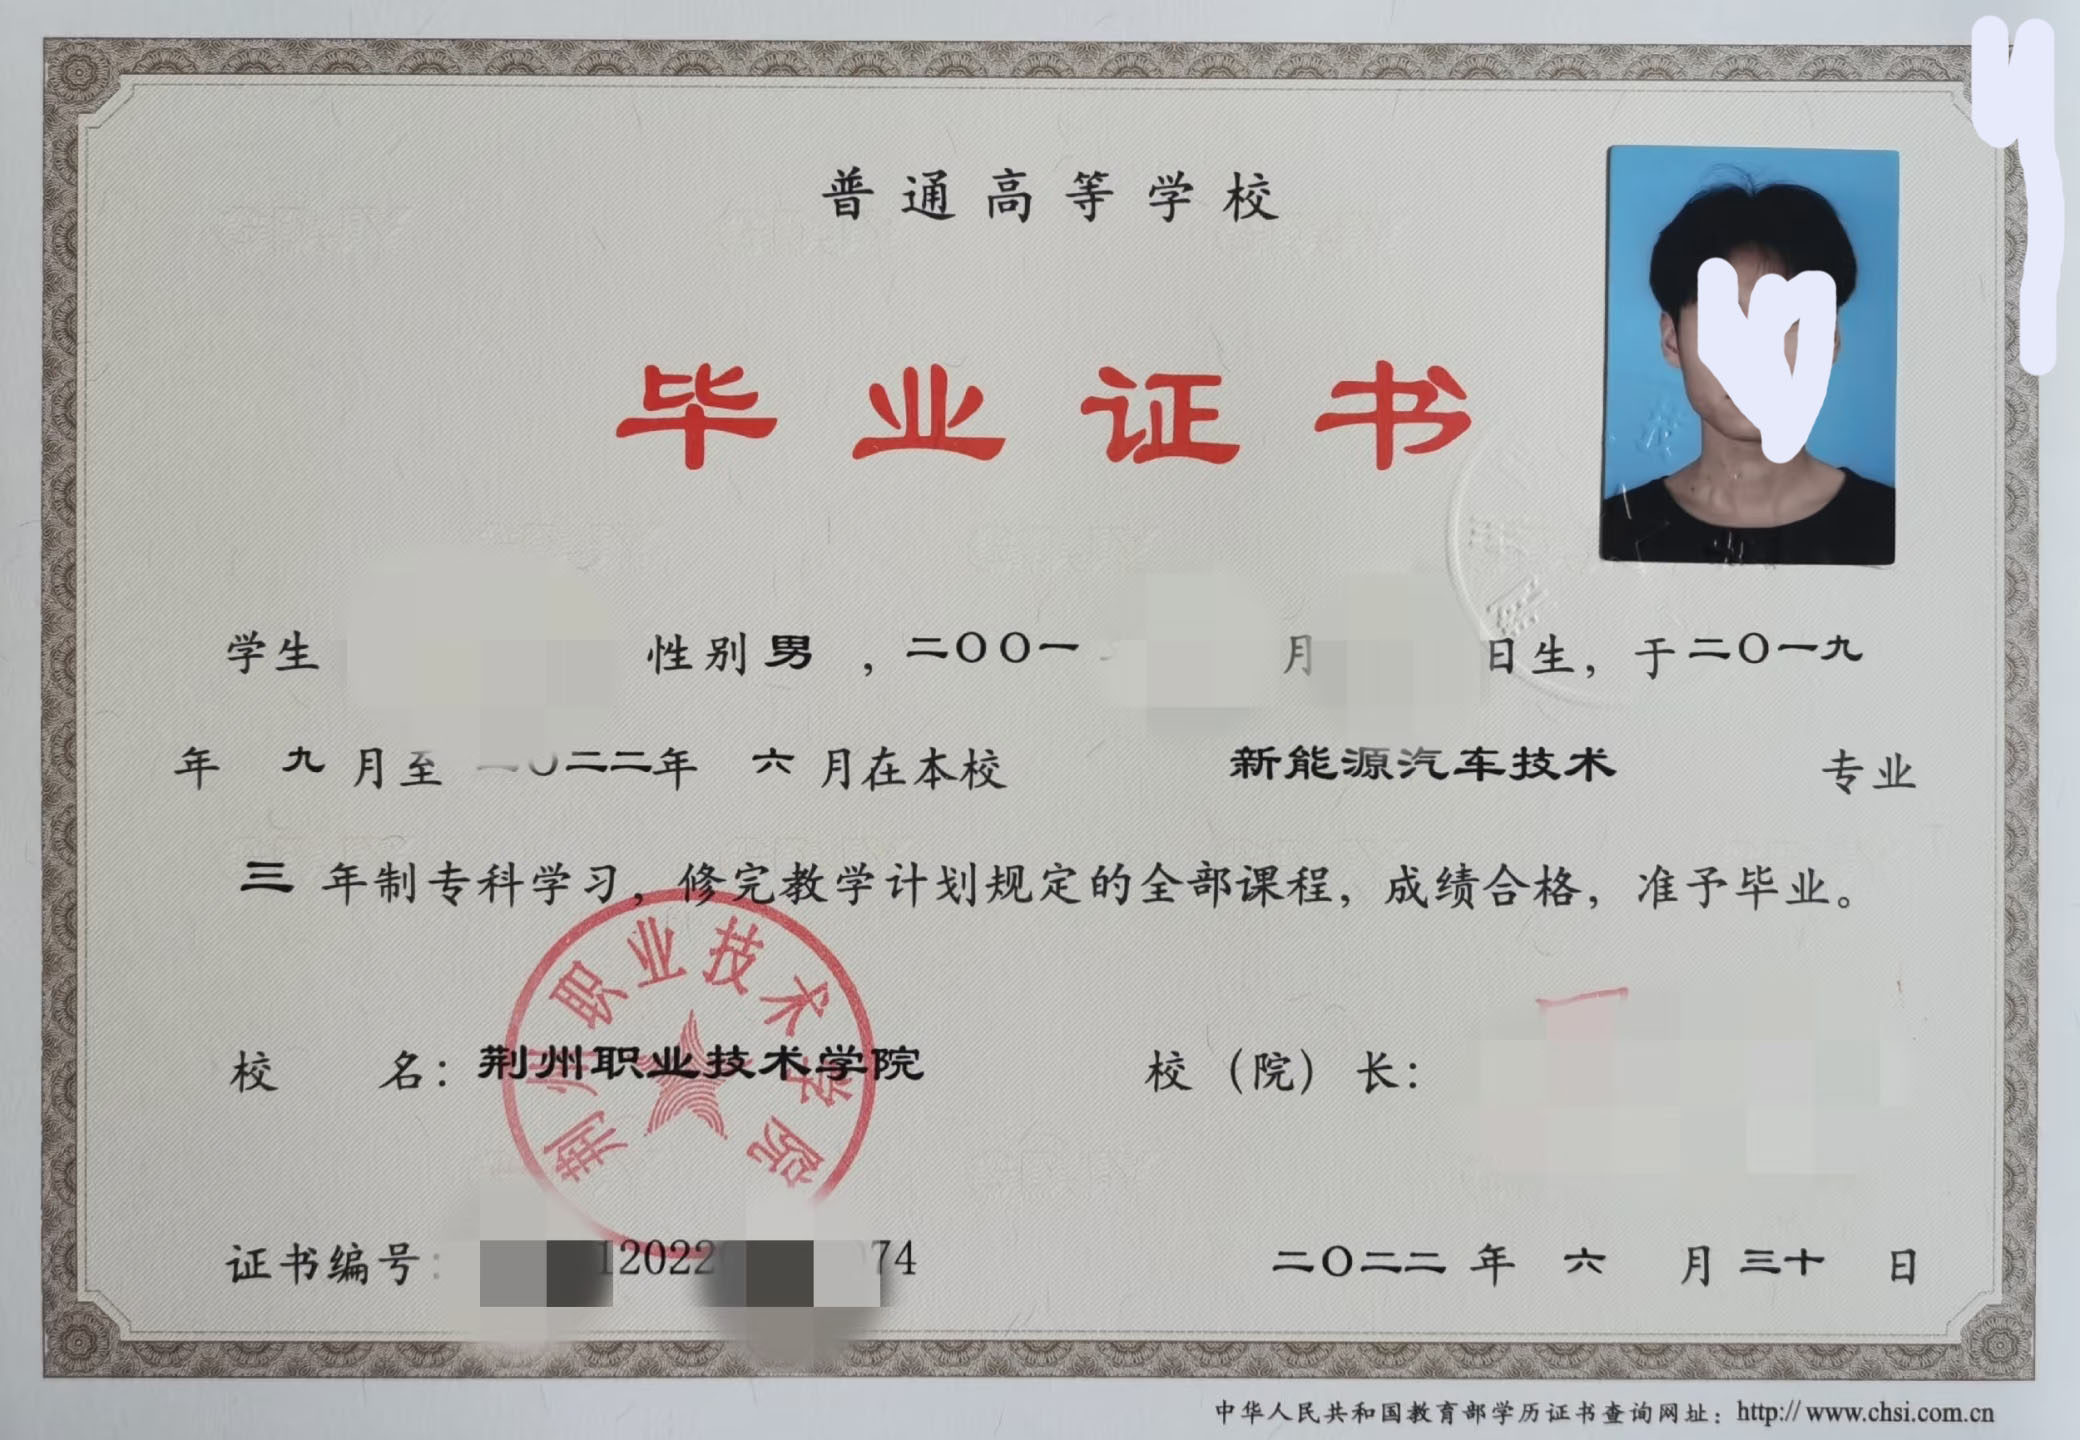 普通高等学校
毕业证书
学生 性别 男 ，二〇〇一 月 日生，于二〇一九
年 九 月至 二〇二二年 六 月在本校 新能源汽车技术 专业
三 年制专科学习，修完教学计划规定的全部课程，成绩合格，准予毕业。
荆州职业技术学院
校 名：荆州职业技术学院 校（院）长：
证书编号： 12022 74 二〇二二 年 六 月 三十 日
中华人民共和国教育部学历证书查询网址：http://www.chsi.com.cn